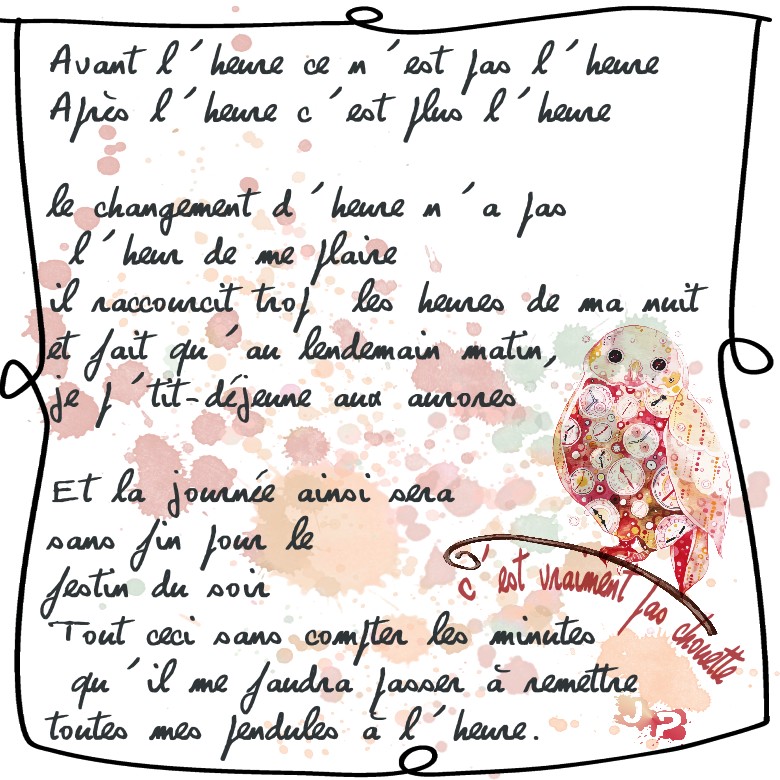 Avant l'heure ce n'est pas l'heure
Après l'heure c'est plus l'heure
le changement d'heure n'a pas
l'heur de me plaire
il raccourcit trop les heures de ma nuit
et fait qu'au lendemain matin,
je p'tit-déjeune aux aurores
Et la journée ainsi sera
sans fin pour le
festin du soir
Tout ceci sans compter les minutes
qu'il me faudra passer à remettre
toutes mes pendules à l'heure.
c'est vraiment pas chouette
JP